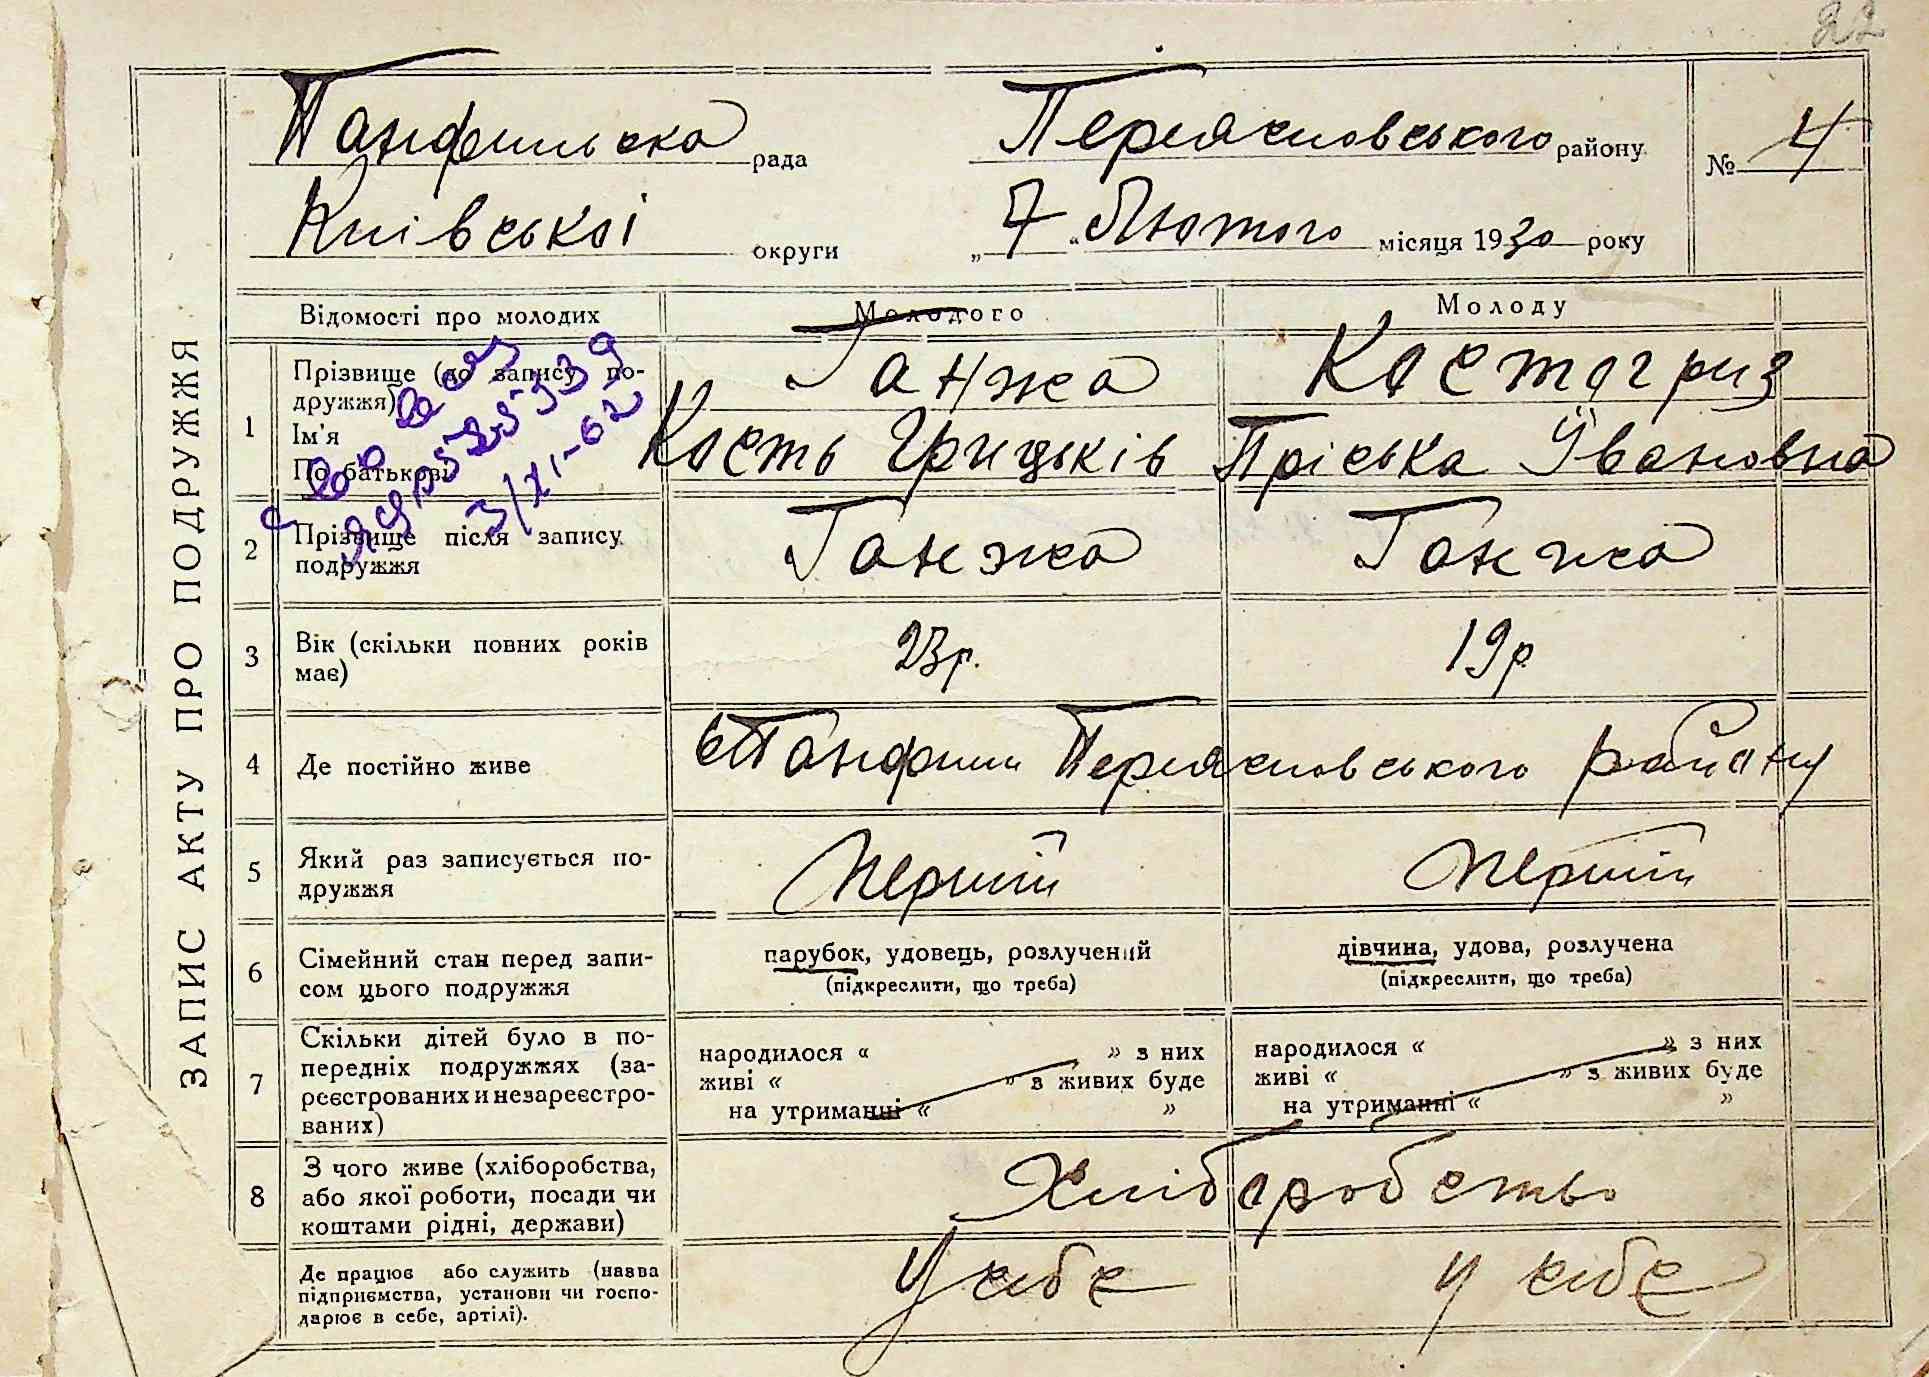 22
ЗАПИС АКТУ ПРО ПОДРУЖЖЯ
Панфильска рада Переяславського району № 4
Київської округи „ 7 “ Лютого місяця 1930 року
Відомості про молодих Молодого Молоду
1 Прізвище (до запису по-
дружжя) Ганжа Костогриз
Ім'я
По батькові Кость Грицьків Пріська Йвановна
яяр 525339
3/XI-62
2 Прізвище після запису
подружжя Ганжа Ганжа
3 Вік (скільки повних років
має) 23р. 19р
4 Де постійно живе с Панфили Переяславського району
5 Який раз записується по-
дружжя Перший Перший
6 Сімейний стан перед запи-
сом цього подружжя парубок, удовець, розлучений дівчина, удова, розлучена
(підкреслити, що треба) (підкреслити, що треба)
7 Скільки дітей було в по-
передніх подружжях (за-
реєстрованих и незареєстро-
ваних)
народилося « » з них
живі « » з живих буде
на утриманні « »
народилося « » з них
живі « » з живих буде
на утриманні « »
8 З чого живе (хліборобства,
або якої роботи, посади чи
коштами рідні, держави) Хліборобство
Де працює або служить (назва
підприємства, установи чи госпо-
дарює в себе, артілі). У себе у себе